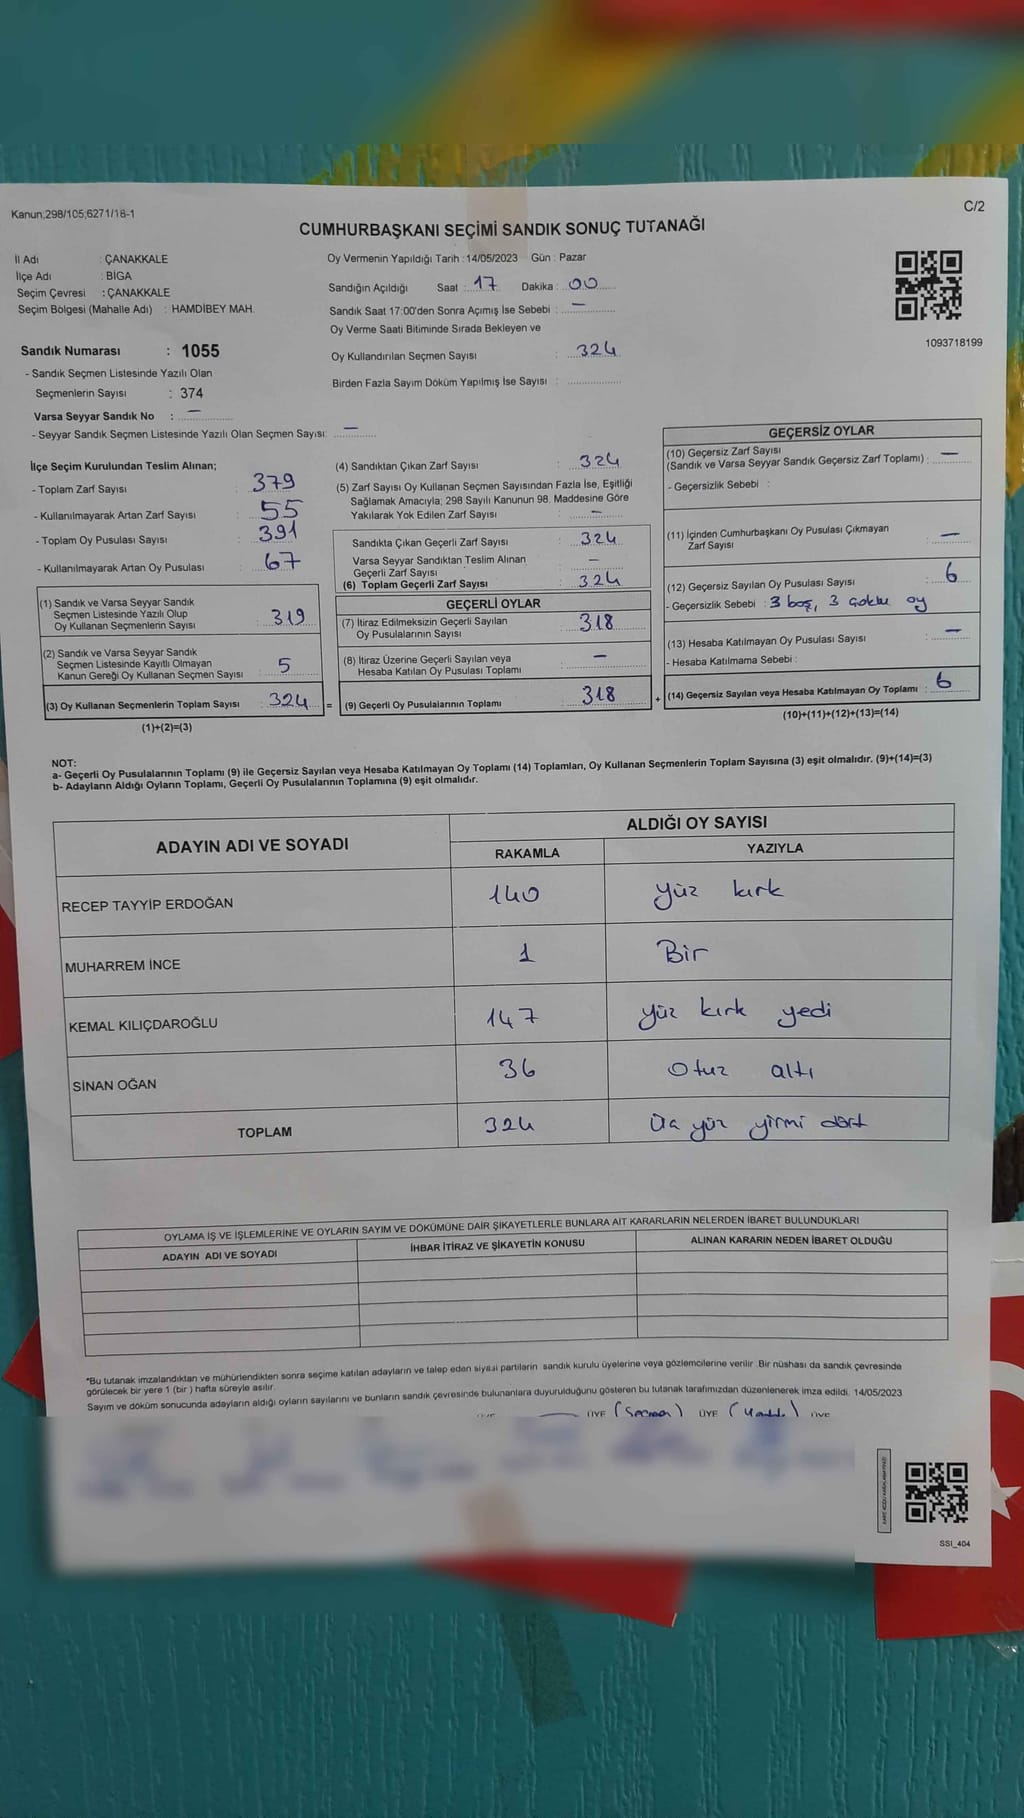 Kanun;298/105;6271/18-1
C/2
CUMHURBAŞKANI SEÇİMİ SANDIK SONUÇ TUTANAĞI
İl Adı : ÇANAKKALE
İlçe Adı : BİGA
Seçim Çevresi : ÇANAKKALE
Seçim Bölgesi (Mahalle Adı) : HAMDİBEY MAH.
Oy Vermenin Yapıldığı Tarih : 14/05/2023 Gün : Pazar
Sandığın Açıldığı Saat : 17 Dakika : 00
Sandık Saat 17:00'den Sonra Açımış İse Sebebi : —
Oy Verme Saati Bitiminde Sırada Bekleyen ve
Oy Kullandırılan Seçmen Sayısı : 324
Birden Fazla Sayım Döküm Yapılmış İse Sayısı :
1093718199
Sandık Numarası : 1055
- Sandık Seçmen Listesinde Yazılı Olan
Seçmenlerin Sayısı : 374
Varsa Seyyar Sandık No : —
- Seyyar Sandık Seçmen Listesinde Yazılı Olan Seçmen Sayısı: —
İlçe Seçim Kurulundan Teslim Alınan;
- Toplam Zarf Sayısı : 379
- Kullanılmayarak Artan Zarf Sayısı : 55
- Toplam Oy Pusulası Sayısı : 391
- Kullanılmayarak Artan Oy Pusulası : 67
(1) Sandık ve Varsa Seyyar Sandık
Seçmen Listesinde Yazılı Olup
Oy Kullanan Seçmenlerin Sayısı : 319
(2) Sandık ve Varsa Seyyar Sandık
Seçmen Listesinde Kayıtlı Olmayan
Kanun Gereği Oy Kullanan Seçmen Sayısı : 5
(3) Oy Kullanan Seçmenlerin Toplam Sayısı : 324 =
(1)+(2)=(3)
(4) Sandıktan Çıkan Zarf Sayısı : 324
(5) Zarf Sayısı Oy Kullanan Seçmen Sayısından Fazla İse, Eşitliği
Sağlamak Amacıyla; 298 Sayılı Kanunun 98. Maddesine Göre
Yakılarak Yok Edilen Zarf Sayısı : —
Sandıkta Çıkan Geçerli Zarf Sayısı : 324
Varsa Seyyar Sandıktan Teslim Alınan
Geçerli Zarf Sayısı : —
(6) Toplam Geçerli Zarf Sayısı : 324
GEÇERLİ OYLAR
(7) İtiraz Edilmeksizin Geçerli Sayılan
Oy Pusulalarının Sayısı : 318
(8) İtiraz Üzerine Geçerli Sayılan veya
Hesaba Katılan Oy Pusulası Toplamı : —
(9) Geçerli Oy Pusulalarının Toplamı : 318 +
GEÇERSİZ OYLAR
(10) Geçersiz Zarf Sayısı
(Sandık ve Varsa Seyyar Sandık Geçersiz Zarf Toplamı) : —
- Geçersizlik Sebebi :
(11) İçinden Cumhurbaşkanı Oy Pusulası Çıkmayan
Zarf Sayısı : —
(12) Geçersiz Sayılan Oy Pusulası Sayısı : 6
- Geçersizlik Sebebi : 3 boş, 3 çoklu oy
(13) Hesaba Katılmayan Oy Pusulası Sayısı : —
- Hesaba Katılmama Sebebi :
(14) Geçersiz Sayılan veya Hesaba Katılmayan Oy Toplamı : 6
(10)+(11)+(12)+(13)=(14)
NOT:
a- Geçerli Oy Pusulalarının Toplamı (9) ile Geçersiz Sayılan veya Hesaba Katılmayan Oy Toplamı (14) Toplamları, Oy Kullanan Seçmenlerin Toplam Sayısına (3) eşit olmalıdır. (9)+(14)=(3)
b- Adayların Aldığı Oyların Toplamı, Geçerli Oy Pusulalarının Toplamına (9) eşit olmalıdır.
ADAYIN ADI VE SOYADI
ALDIĞI OY SAYISI
RAKAMLA YAZIYLA
RECEP TAYYİP ERDOĞAN 140 Yüz kırk
MUHARREM İNCE 1 Bir
KEMAL KILIÇDAROĞLU 147 Yüz kırk yedi
SİNAN OĞAN 36 Otuz altı
TOPLAM 324 Üç yüz yirmi dört
OYLAMA İŞ VE İŞLEMLERİNE VE OYLARIN SAYIM VE DÖKÜMÜNE DAİR ŞİKAYETLERLE BUNLARA AİT KARARLARIN NELERDEN İBARET BULUNDUKLARI
ADAYIN ADI VE SOYADI İHBAR İTİRAZ VE ŞİKAYETİN KONUSU ALINAN KARARIN NEDEN İBARET OLDUĞU
*Bu tutanak imzalandıktan ve mühürlendikten sonra seçime katılan adayların ve talep eden siyasi partilerin sandık kurulu üyelerine veya gözlemcilerine verilir. Bir nüshası da sandık çevresinde
görülecek bir yere 1 (bir ) hafta süreyle asılır.
Sayım ve döküm sonucunda adayların aldığı oyların sayılarını ve bunların sandık çevresinde bulunanlara duyurulduğunu gösteren bu tutanak tarafımızdan düzenlenerek imza edildi. 14/05/2023
ÜYE ÜYE ÜYE
SSI_404